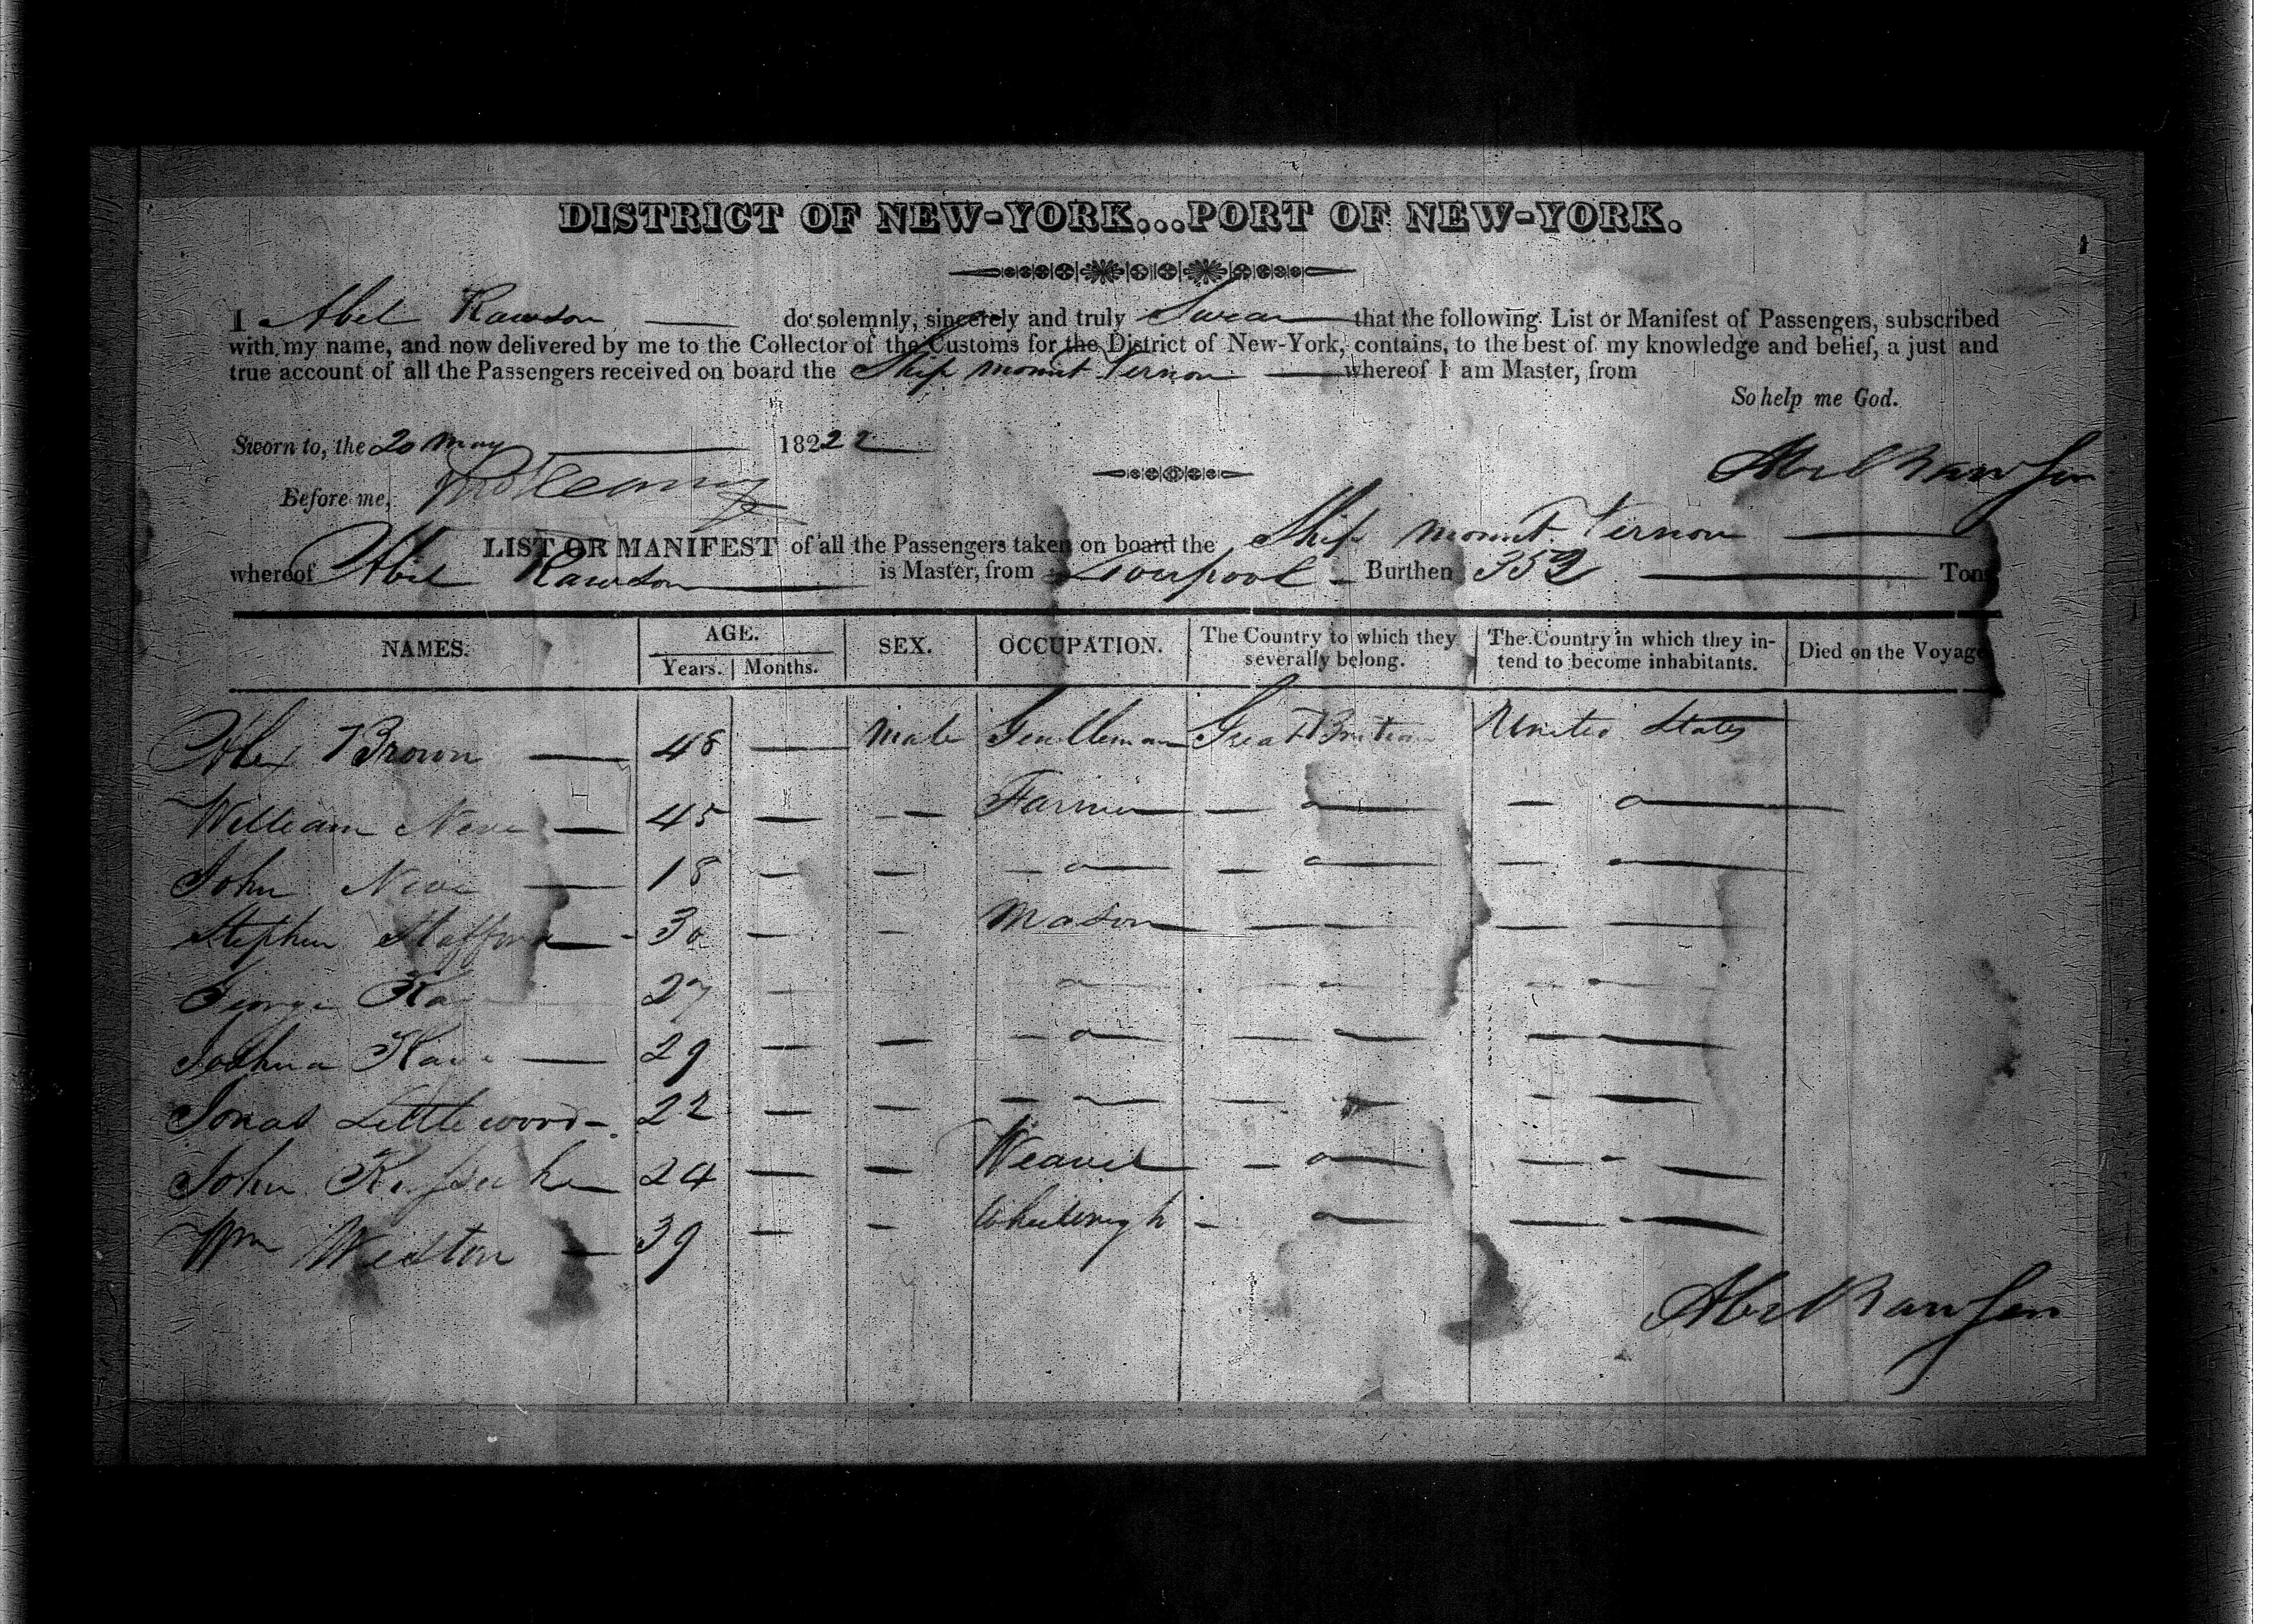 DISTRICT OF NEW-YORK...PORT OF NEW-YORK.
I Abel Rawson do solemnly, sincerely and truly Swear that the following List or Manifest of Passengers, subscribed
with my name, and now delivered by me to the Collector of the Customs for the District of New-York, contains, to the best of my knowledge and belief, a just and
true account of all the Passengers received on board the Ship Mount Vernon whereof I am Master, from
So help me God.
Sworn to, the 20 May 18222
Abel Rawson
Before me,
LIST OR MANIFEST of all the Passengers taken on board the Ship Mount Vernon
whereof Abel Rawson is Master, from Liverpool Burthen 352 Tons
NAMES. AGE. Years. Months. SEX. OCCUPATION. The Country to which they severally belong. The Country in which they intend to become inhabitants. Died on the Voyage
Alex Brown — 48 — Male Gentleman Great Britain United States
William — 45 — — Farmer — —
John — 18 — — — — —
Stephen Stafford — 30 — — Mason — —
George 27 — — — —
Joshua — 29 — — — — —
Jonas Littlewood - 22 — — — — —
John 24 — — Weaver — —
Wm Weston — 39 — — Wheelwrigh — —
Abel Rawson